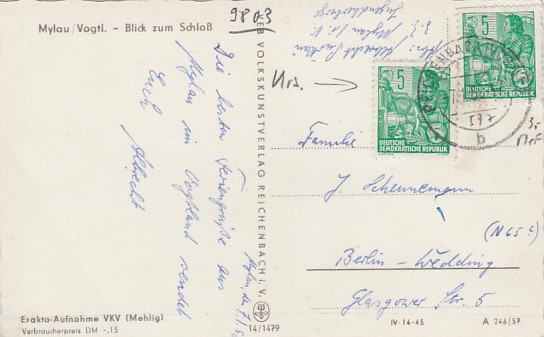 9803
Mylau/Vogtl. - Blick zum Schloß
Die besten Feriengrüße aus
Mylau im Vogtland sendet
Euch Albrecht
Mylau, de.
Exakta-Aufnahme VKV (Mehlig)
Verbraucherpreis DM -.15
VEB VOLKSKUNSTVERLAG REICHENBACH i. V.
14/1479
Abs.: Albrecht
z.Z. Mylau i. V.
Jugendherberge
5
DEUTSCHE
DEMOKRATISCHE REPUBLIK
5
DEUTSCHE
DEMOKRATISCHE REPUBLIK
REICHENBACH (VOGTL)
b
Familie
J. Scheunemann
(N 65)
Berlin-Wedding
Glasgower Str. 5
IV-14-45
A 246/57